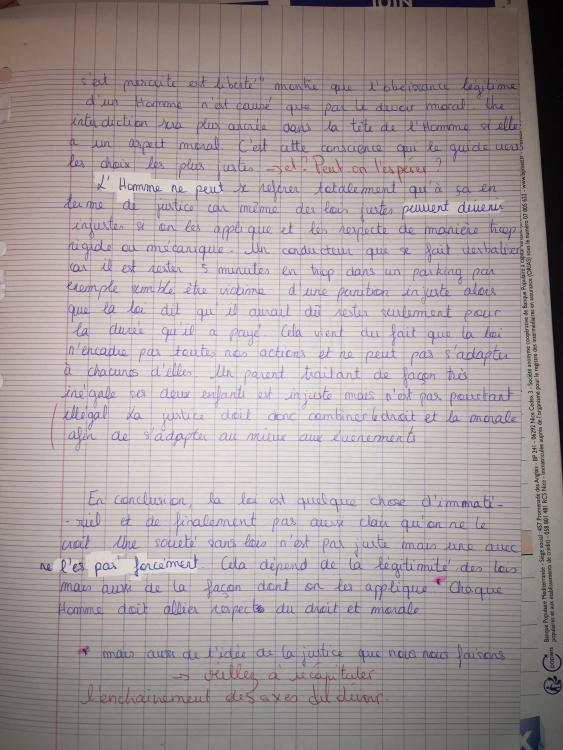 JUIN
s'est prescrite est liberté" montre que l'obeissance légitime
d'un Homme n'est causé que par le devoir moral. Une
interdiction sera plus ancrée dans la tête de l'Homme si elle
a un aspect moral. C'est cette conscience qui le guide vers
les choix les plus justes →et? Peut on l'espérer?
L'Homme ne peut se référer totalement qu'à ça en
terme de justice car même des lois justes peuvent devenir
injustes si on les applique et les respecte de manière trop
rigide ou mécanique. Un conducteur que se fait verbaliser
car il est rester 5 minutes en trop dans un parking par
exemple semble être victime d'une punition injuste alors
que la loi dit qu'il aurait dû rester seulement pour
la durée qu'il a payé. Cela vient du fait que la loi
n'encadre pas toutes nos actions et ne peut pas s'adapter
à chacunes d'elles. Un parent traitant de façon très
inégale ses deux enfants est injuste mais n'est pas pourtant
illégal. La justice doit donc combiner le droit et la morale
afin de s'adapter au mieux aux évènements
En conclusion, la loi est quelque chose d'immaté-
-riel et de finalement pas aussi clair qu'on ne le
croit. Une société sans lois n'est pas juste mais une avec
ne l'est pas forcément. Cela dépend de la légitimité des lois
mais aussi de la façon dont on les applique * Chaque
Homme doit allier respect du droit et morale
* mais aussi de l'idée de la justice que nous nous faisons
→ veillez à récapituler
l'enchainement des axes du devoir.
Banque Populaire Méditerranée - Siège social : 457 Promenade des Anglais - BP 241 - 06292 Nice Cedex 3 - Société anonyme coopérative de Banque Populaire à capital
populaires et aux établissements de crédit) - 058 801 481 RCS Nice - Immatriculée auprès de l'organisme pour le registre des intermédiaires en assurances (ORIAS) sous le numéro 07 005 622 - www.bpmed.fr